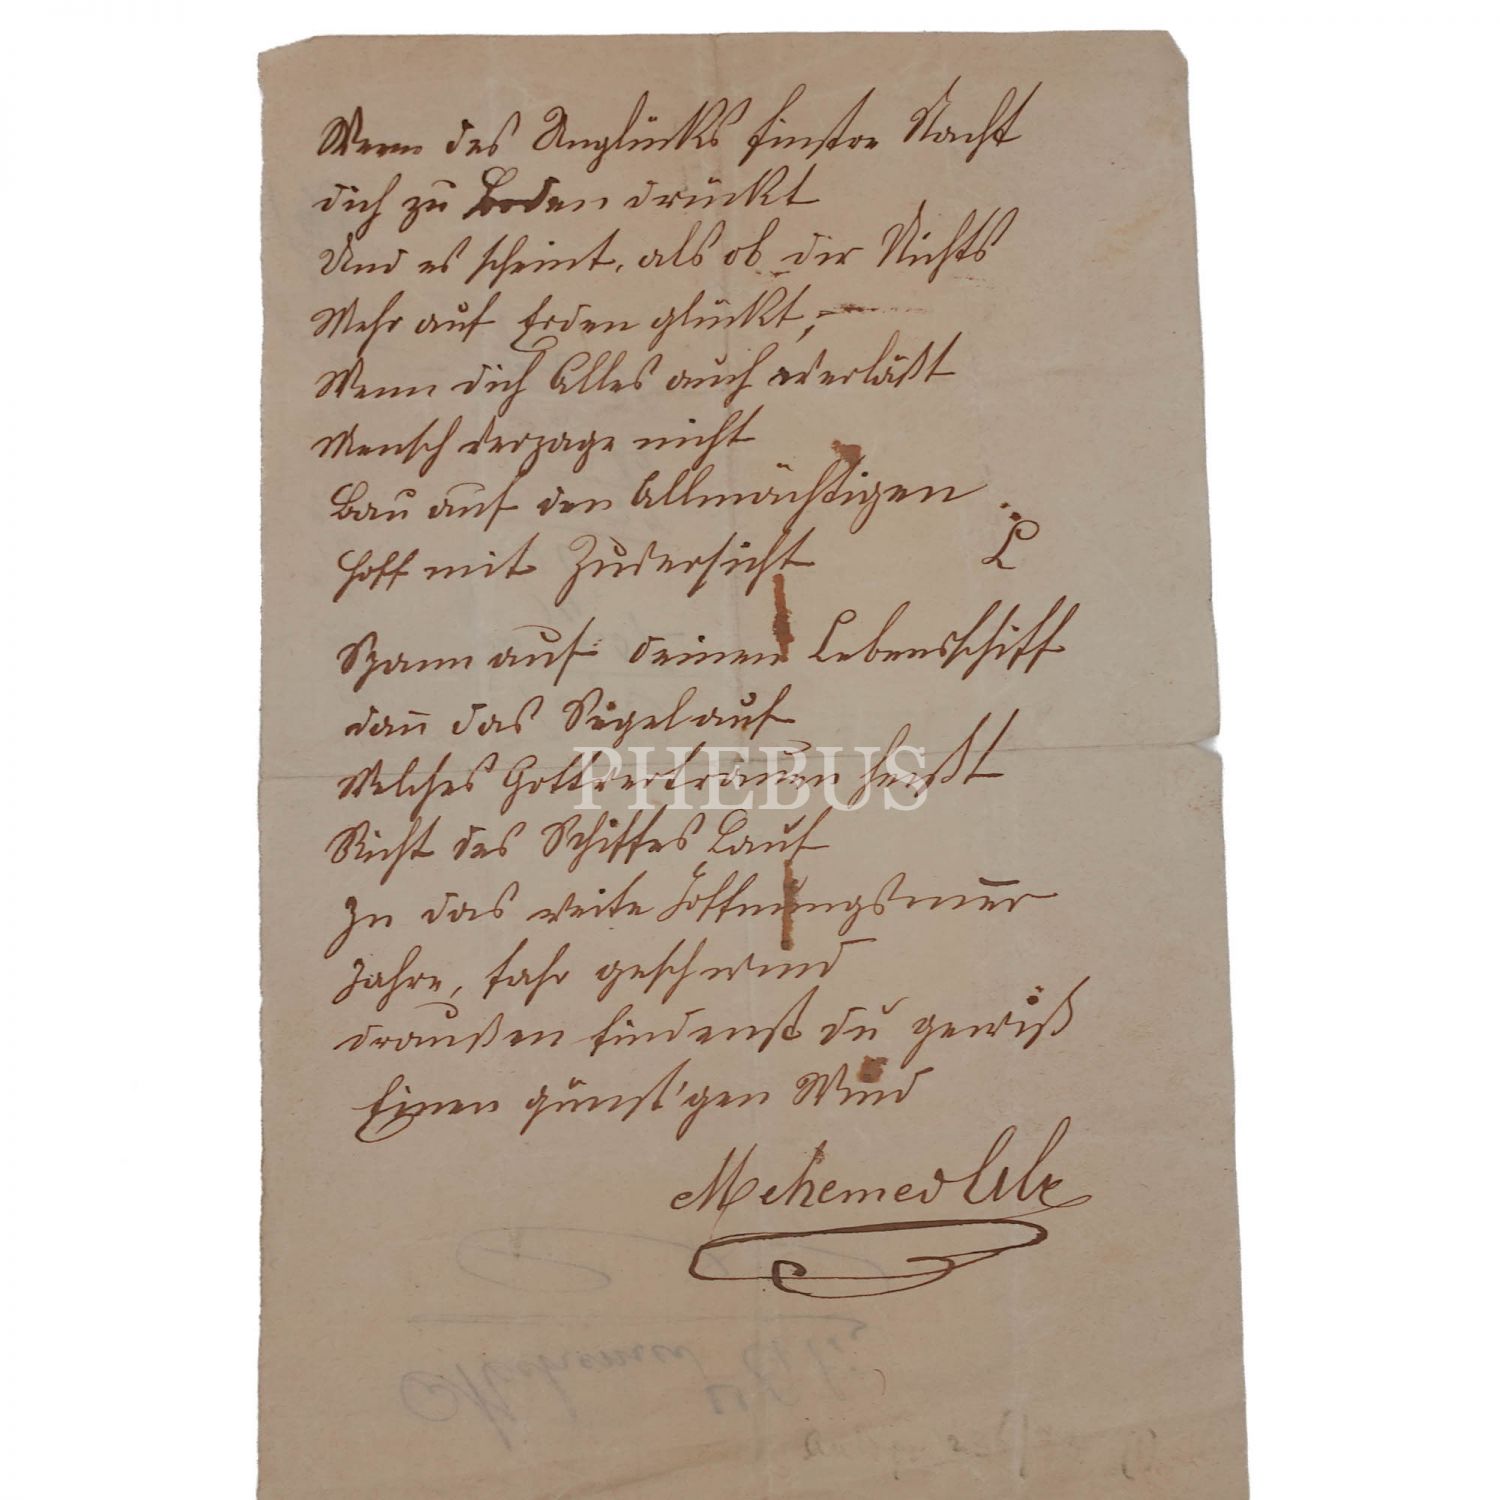 Wenn des Unglücks finstre Nacht
dich zu Boden drückt
Und es scheint, als ob dir Nichts
Mehr auf Erden glückt,
Wenn dich Alles auch verläßt
Mensch verzage nicht
Bau auf den Allmächtigen
Hoff mit Zuversicht
Spann auf deinem Lebensschiff
dan̄ das Segel auf
Welches Gottvertrauen heißt
PHEBUS
Richt des Schiffes Lauf
In das weite Hoffnungsmeer
Fahre, fahr geschwind
draußen findenst du gewiß
Einen günst'gen Wind
Mehemed Ali